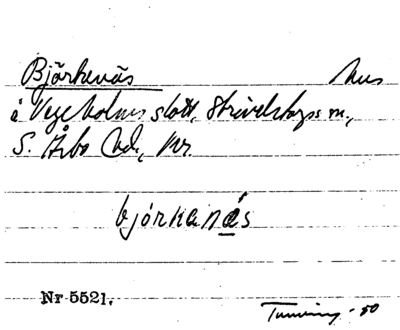 Björkenäs hus
å Vegeholms slott, Strövelstorps sn.,
S. Åsbo hd., Kr.
bjórkanäs
Nr 5521.
Tuneving -50